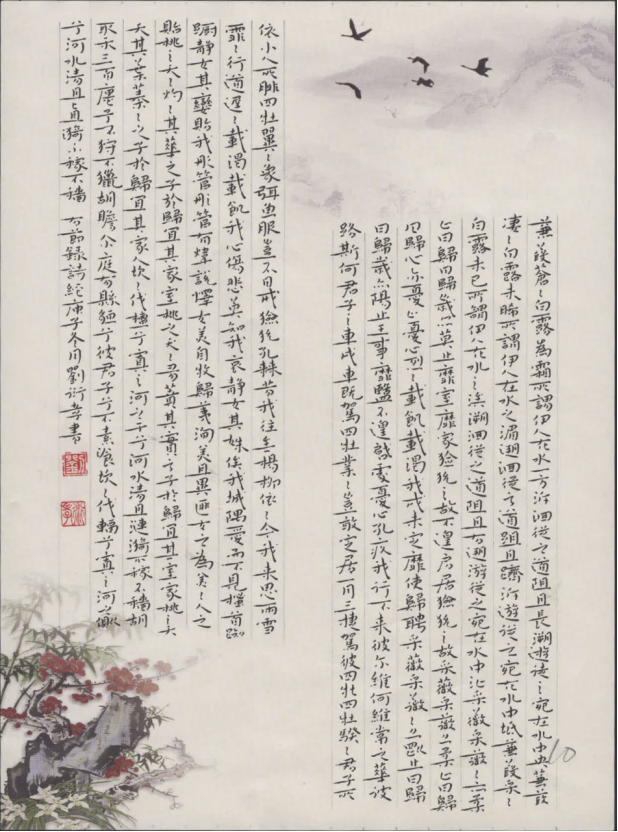 蒹葭蒼〻白露為霜所謂伊人在水一方泝洄從之道阻且長溯遊從之宛在水中央蒹葭
凄〻白露未晞所謂伊人在水之湄溯洄從之道阻且躋泝游從之宛在水中坻蒹葭采〻
白露未已所謂伊人在水之涘溯洄從之道阻且右溯游從之宛在水中沚采薇采薇〻亦柔
止曰歸曰歸歲亦莫止靡室靡家獫狁之故不遑居獫狁之故采薇采薇〻亦柔止曰歸
曰歸心亦憂止憂心烈〻載飢載渴我戍未定靡使歸聘采薇采薇〻亦剛止曰歸
曰歸歲亦陽止王事靡盬不遑啟處憂心孔疚我行不来彼尔維何維常之華彼
路斯何君子之車戎車既駕四牡業〻豈敢定居一月三捷駕彼四牡四牡騤〻君子所
依小人所腓四牡翼〻象弭魚服豈不日戒獫狁孔棘昔我往矣楊柳依〻今我来思雨雪
霏〻行道遲〻載渴載飢我心傷悲莫知我哀靜女其姝俟我城隅愛而不見搔首踟
蹰靜女其孌貽我彤管彤管有煒說懌女美自牧歸荑洵美且異匪女之為美〻人之
貽桃〻夭〻灼〻其華之子於歸宜其家室桃之夭〻有蕡其實之子於歸宜其室家桃〻夭
夭其葉蓁〻之子於歸宜其家人坎〻伐檀兮寘之河之干兮河水清且漣漪不稼不穡胡
取禾三百廛兮不狩不獵胡瞻尔庭有縣貆兮彼君子兮不素飡坎〻伐輻兮寘之河之側
兮河水清且直漪不稼不穡 右節錄詩經庚子冬月劉衍孝書
10